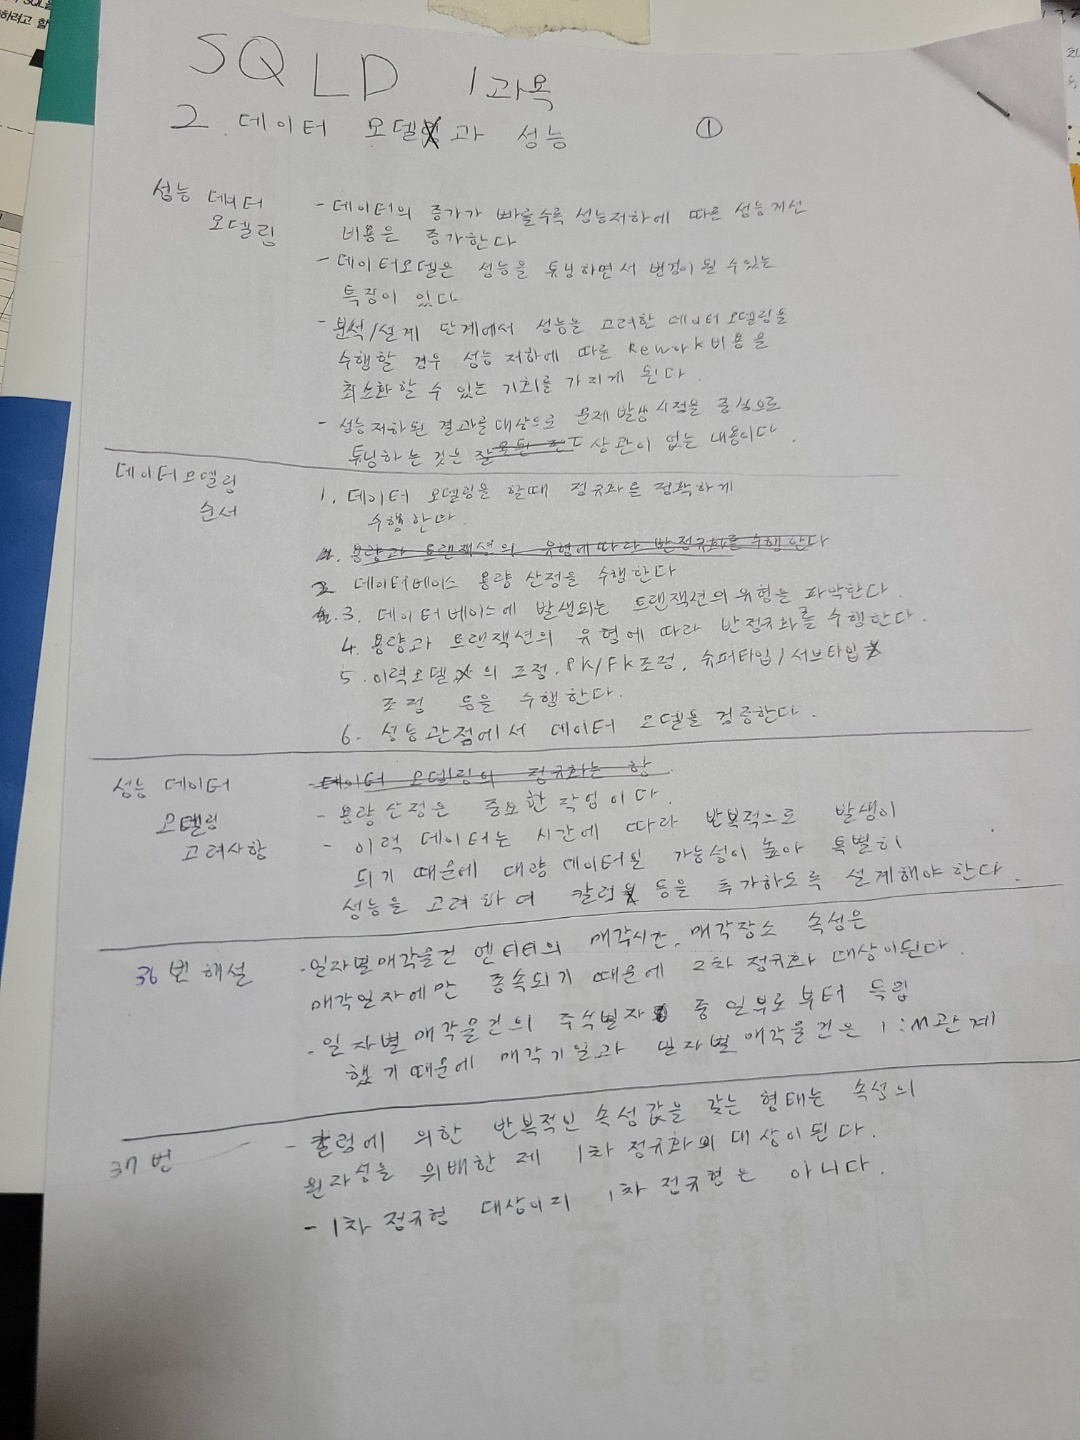 SQLD 1과목
2. 데이터 모델과 성능 ①
성능 데이터
모델링
- 데이터의 증가가 빠를수록 성능저하에 따른 성능개선
비용은 증가한다
- 데이터모델은 성능을 튜닝하면서 변경이 될 수 있는
특징이 있다
- 분석/설계 단계에서 성능을 고려한 데이터모델링을
수행할 경우 성능 저하에 따른 Rework비용을
최소화 할 수 있는 기회를 가지게 된다.
- 성능저하된 결과를 대상으로 문제발생시점을 중심으로
튜닝하는 것은 상관이 없는 내용이다.
데이터모델링
순서
1. 데이터 모델링을 할때 정규화를 정확하게
수행한다.
용량과 트랜잭션의 유형에 따라 반정규화를 수행한다
2 데이터베이스 용량 산정을 수행한다
3. 데이터베이스에 발생되는 트랜잭션의 유형을 파악한다.
4. 용량과 트랜잭션의 유형에 따라 반정규화를 수행한다.
5. 이력모델의 조정, PK/FK조정, 슈퍼타입/서브타입
조정 등을 수행한다.
6. 성능관점에서 데이터 모델을 검증한다.
성능 데이터
모델링
고려사항
데이터 모델링의 정규화는 항
- 용량 산정은 중요한 작업이다.
- 이력 데이터는 시간에 따라 반복적으로 발생이
되기 때문에 대량 데이터될 가능성이 높아 특별히
성능을 고려하여 칼럼 등을 추가하도록 설계해야 한다.
36번 해설
- 일자별매각물건 엔터티의 매각시간, 매각장소 속성은
매각일자에만 종속되기 때문에 2차 정규화 대상이된다.
- 일자별 매각물건의 주식별자 중 일부로부터 독립
했기때문에 매각기일과 일자별 매각물건은 1:M관계
37번
- 칼럼에 의한 반복적인 속성값을 갖는 형태는 속성의
원자성을 위배한 제 1차 정규화의 대상이된다.
- 1차 정규형 대상이지 1차 정규형은 아니다.